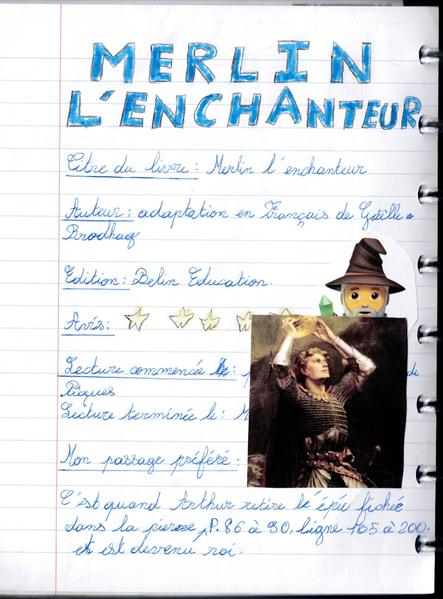 MERLIN
L'ENCHANTEUR
Titre du livre : Merlin l'enchanteur
Auteur : adaptation en Français de Gaëlle
Brodhag
Edition : Belin Education.
Avis :
Lecture commencée le : de
Pâques
Lecture terminée le :
Mon passage préféré :
C'est quand Arthur retire l'épée fichée
dans la pierre, P. 86 à 90, ligne 105 à 200.
et est devenu roi.